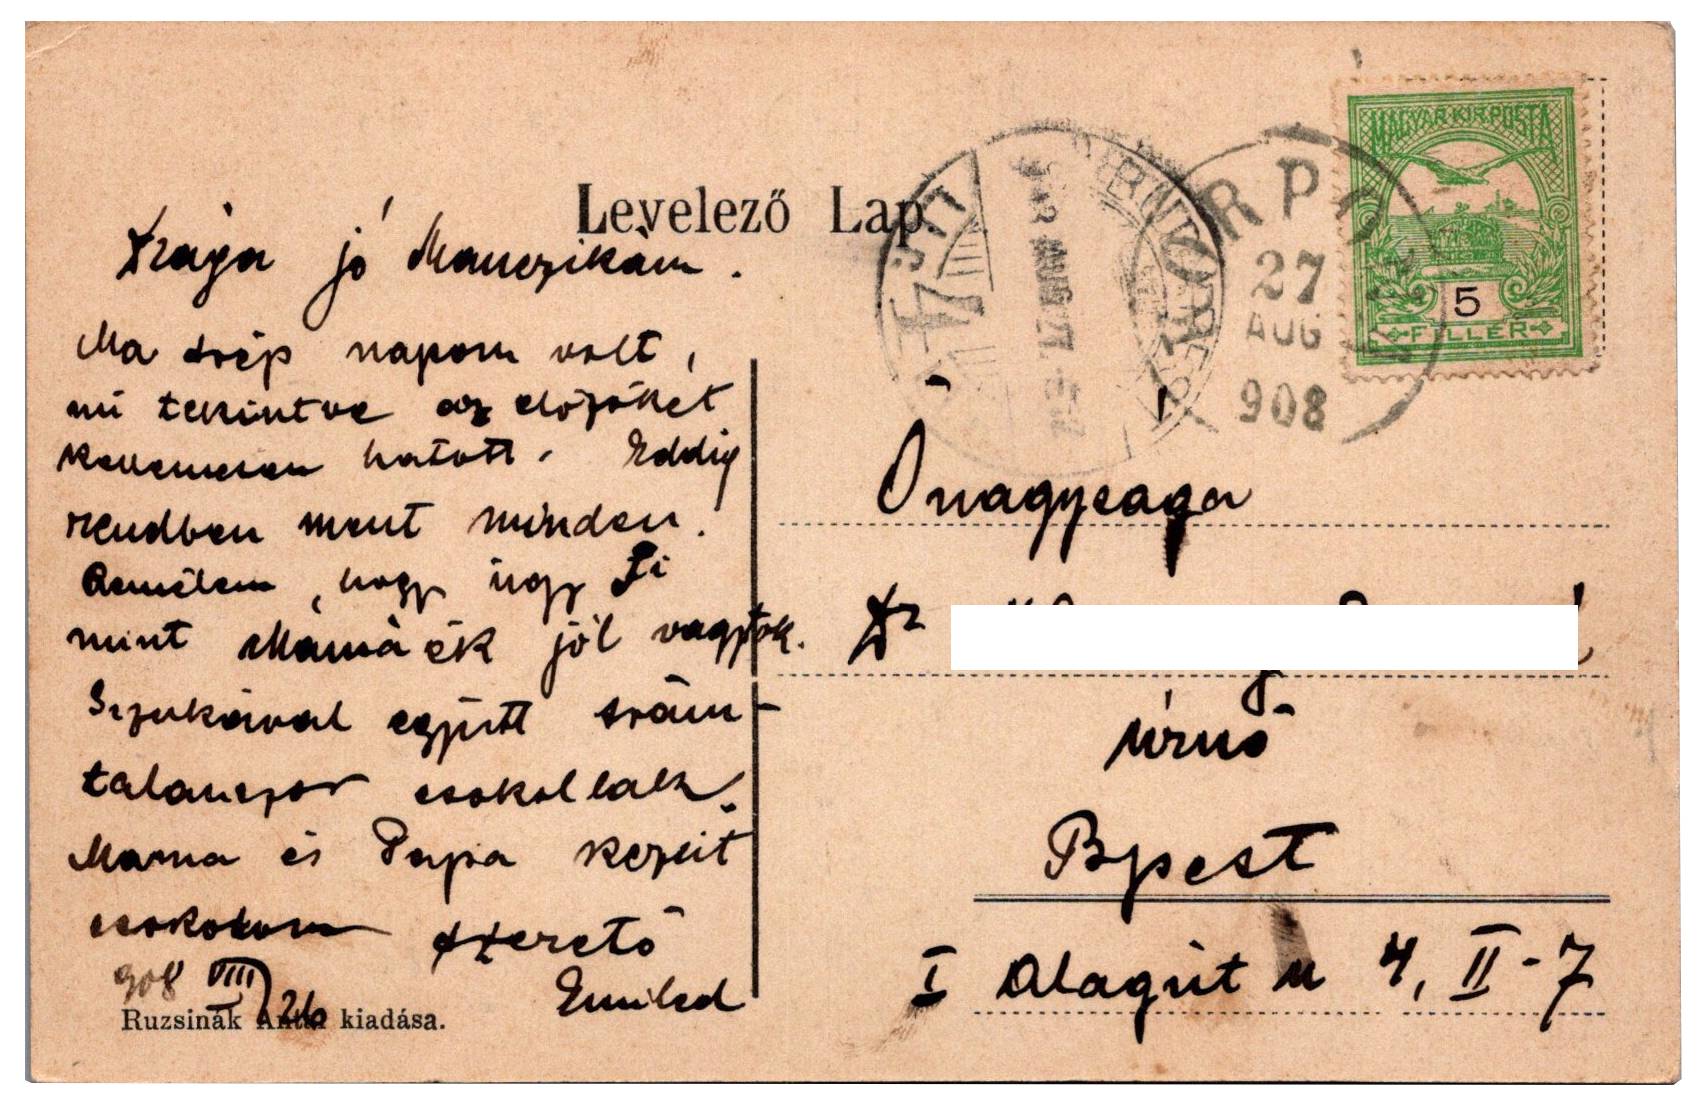 Levelező Lap
Drága jó Manczikám.
Ma szép napom volt,
mi tekintve az előzőket
kellemesen hatott. Eddig
rendben ment minden.
Remélem, hogy úgy Ti
mint Mamáék jól vagytok.
együtt szám-
talanszor csókollak.
Mama és Papa kezeit
csókolom szerető
Emiled
908 VIII/26
Ruzsinák Antal kiadása.
MAGYAR KIR. POSTA
5
FILLÉR
27
AUG
908
Őnagysága
Dr
úrnő
Bpest
I Alagút u 4, II-7